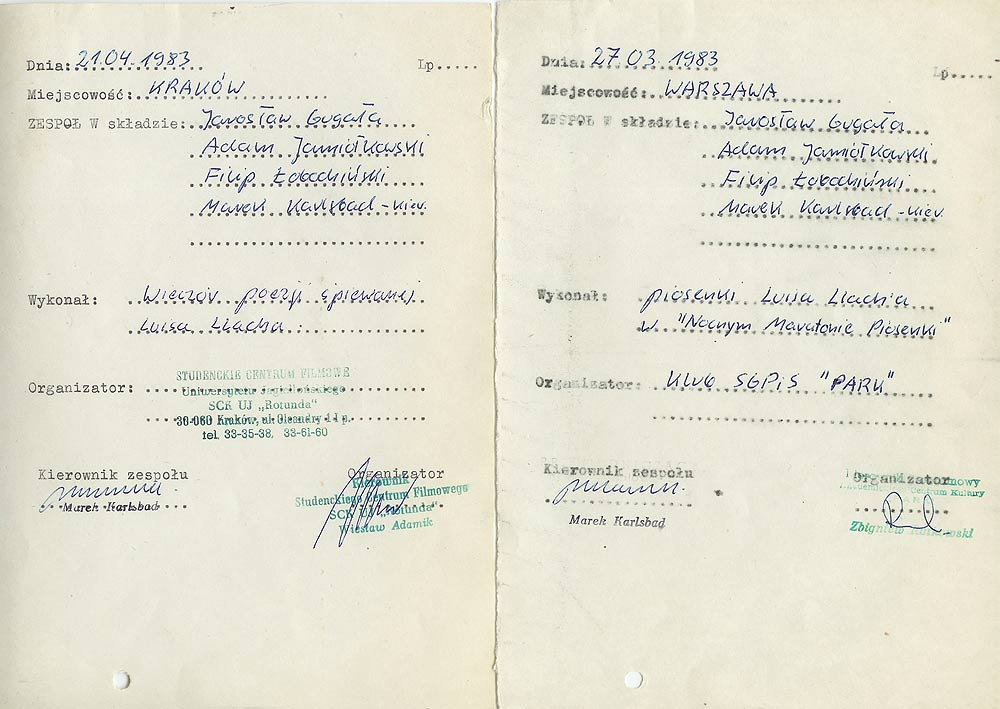 Dnia: 21.04.1983 Lp.....
Miejscowość: KRAKÓW
ZESPÓŁ W składzie: Jarosław Gugała
Adam Jamiołkowski
Filip Łobodziński
Marek Karlsbad - kier.
Wykonał: Wieczór poezji śpiewanej
Luisa Llacha
Organizator: STUDENCKIE CENTRUM FILMOWE
Uniwersytetu Jagiellońskiego
SCK UJ „Rotunda”
30-060 Kraków, ul. Oleandry 1 I p.
tel. 33-35-38, 33-61-60
Kierownik zespołu Organizator
Marek Karlsbad
Kierownik
Studenckiego Centrum Filmowego
SCK UJ „Rotunda”
Wiesław Adamik
Dnia: 27.03.1983 Lp.....
Miejscowość: WARSZAWA
ZESPÓŁ W składzie: Jarosław Gugała
Adam Jamiołkowski
Filip Łobodziński
Marek Karlsbad - kier.
Wykonał: piosenki Luisa Llacha
w "Nocnym Maratonie Piosenki"
Organizator: KLUB SGPiS "PARK"
Kierownik zespołu Organizator
Marek Karlsbad
Centrum Kultury
Zbigniew